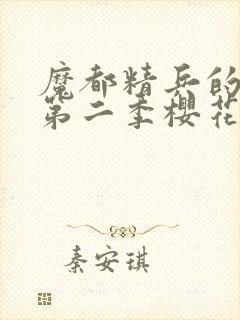 魔都精兵的
第二季樱花
秦安琪